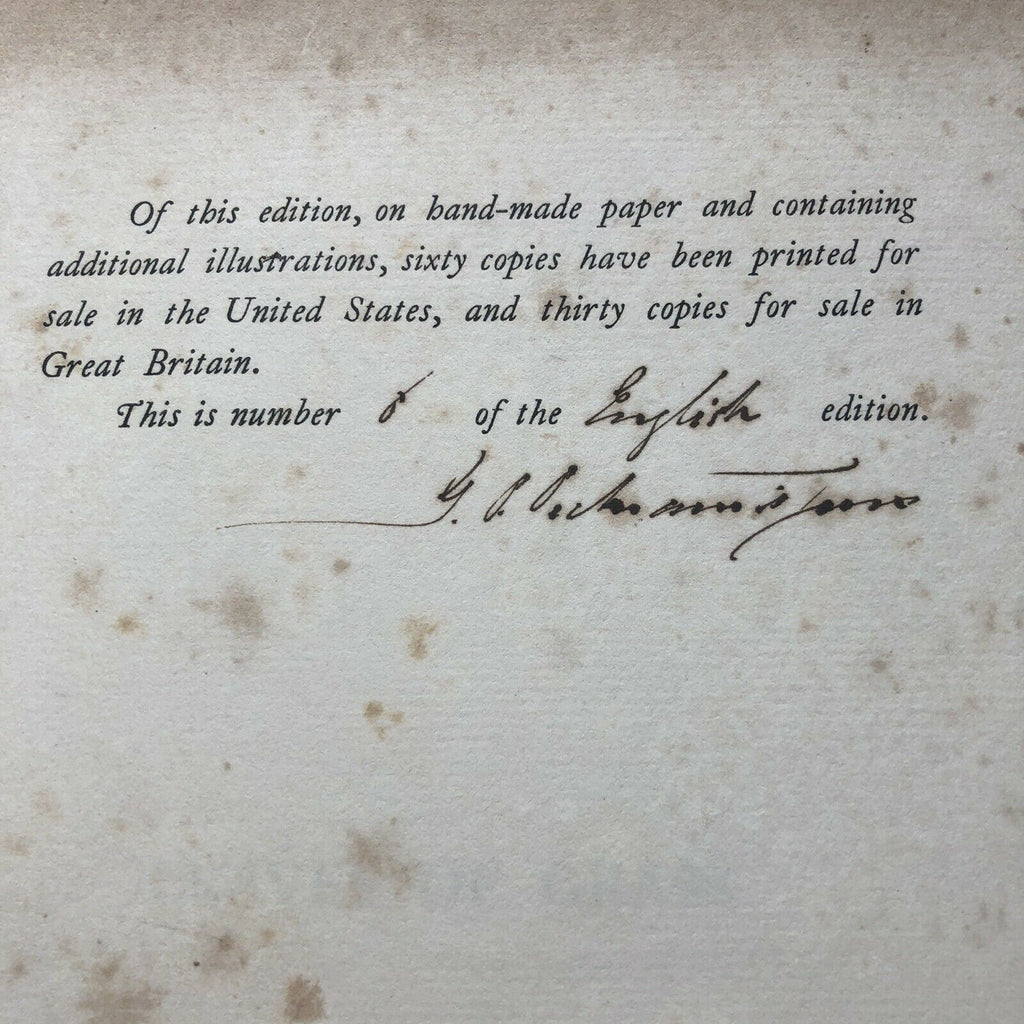 Of this edition, on hand-made paper and containing
additional illustrations, sixty copies have been printed for
sale in the United States, and thirty copies for sale in
Great Britain.
This is number of the English edition.
G. P. Putnam's Sons